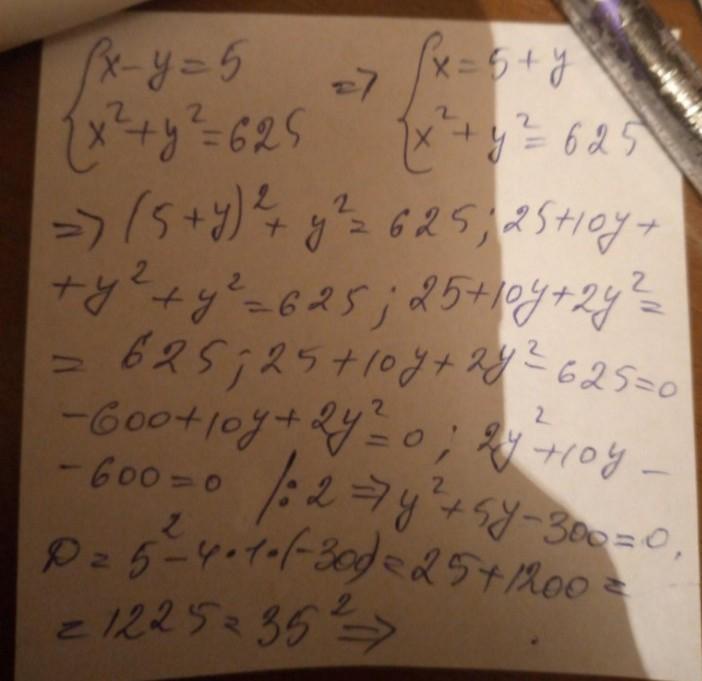 {x-y=5 => {x=5+y
{x²+y²=625 {x²+y²=625
=> (5+y)²+y²=625; 25+10y+
+y²+y²=625; 25+10y+2y²=
= 625; 25+10y+2y²-625=0
-600+10y+2y²=0; 2y²+10y-
-600=0 /:2 => y²+5y-300=0.
D=5²-4·1·(-300)=25+1200=
=1225=35² =>